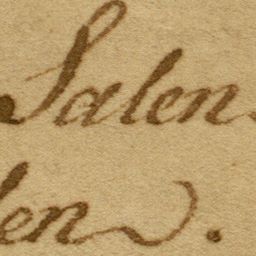 Salen
len.